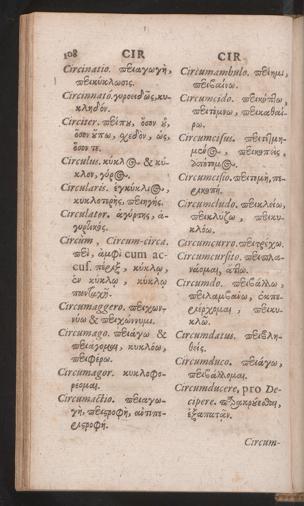 108 CIR
Circinatio. περιαγωγὴ,
περικύκλωσις.
Circinnatò. γυροειδῶς, κυ-
κληδόν.
Circiter. περίπου, ὅσον
ὅσον ὕπω, σχεδὸν, ὡς,
ὅσον τε.
Circulus. κύκλος & κύ-
κλον, γύρος.
Circularis. ἐγκύκλιος,
κυκλοτερὴς, περιηγής.
Circulator. ἀγύρτης, ἀ-
γυρτικός.
Circùm, Circum-circa.
περὶ, ἀμφὶ cum ac-
cus. πέριξ, κύκλῳ,
ἐν κύκλῳ, κύκλῳ
πανταχῆ.
Circumaggero. περιχων-
νύω & περιχώννυμι.
Circumago. περιάγω &
περιάγομαι, κυκλόω,
περιφέρω.
Circumagor. κυκλοφο-
ρέομαι.
Circumactio. περιαγω-
γὴ, περιστροφὴ, ἀντιπε-
ριστροφή.
CIR
Circumambulo. περίειμι,
περιβαίνω.
Circumcido. περικόπτω,
περιτέμνω, περικαθαί-
ρω.
Circumcisus. περιτετμη-
μένος, περικοπεὶς,
ἀπότομος.
Circumcisio. περιτομὴ, πε-
ρικοπή.
Circumcludo. περικλείω,
περικλύζω, περικυ-
κλόω.
Circumcurro. περιτρέχω.
Circumcursito. περιπλα-
νάομαι,
Circumdo. περιβάλλω,
περιλαμβάνω, ἐκπε-
ριέρχομαι, περικυ-
κλῶ.
Circumdatus. περιβλη-
θείς.
Circumduco. περιάγω,
περιβάλλομαι.
Circumducere, pro De-
cipere. παρακρούεσθαι,
ἐξαπατᾷν.
Circum-